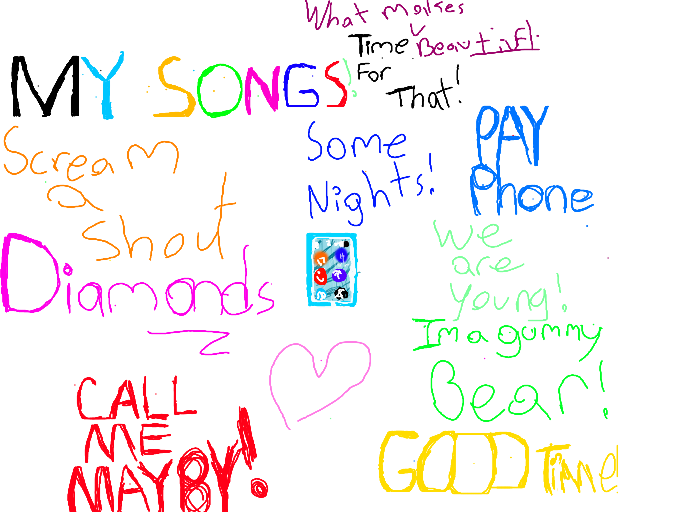 What makes
Beautifl
Time
For
That!
MY SONGS!
Scream
a
shout
Some
Nights!
PAY
Phone
Diamonds
We
are
young!
Im a gummy
Bear!
CALL
ME
MAYBY!
GOOD TIME